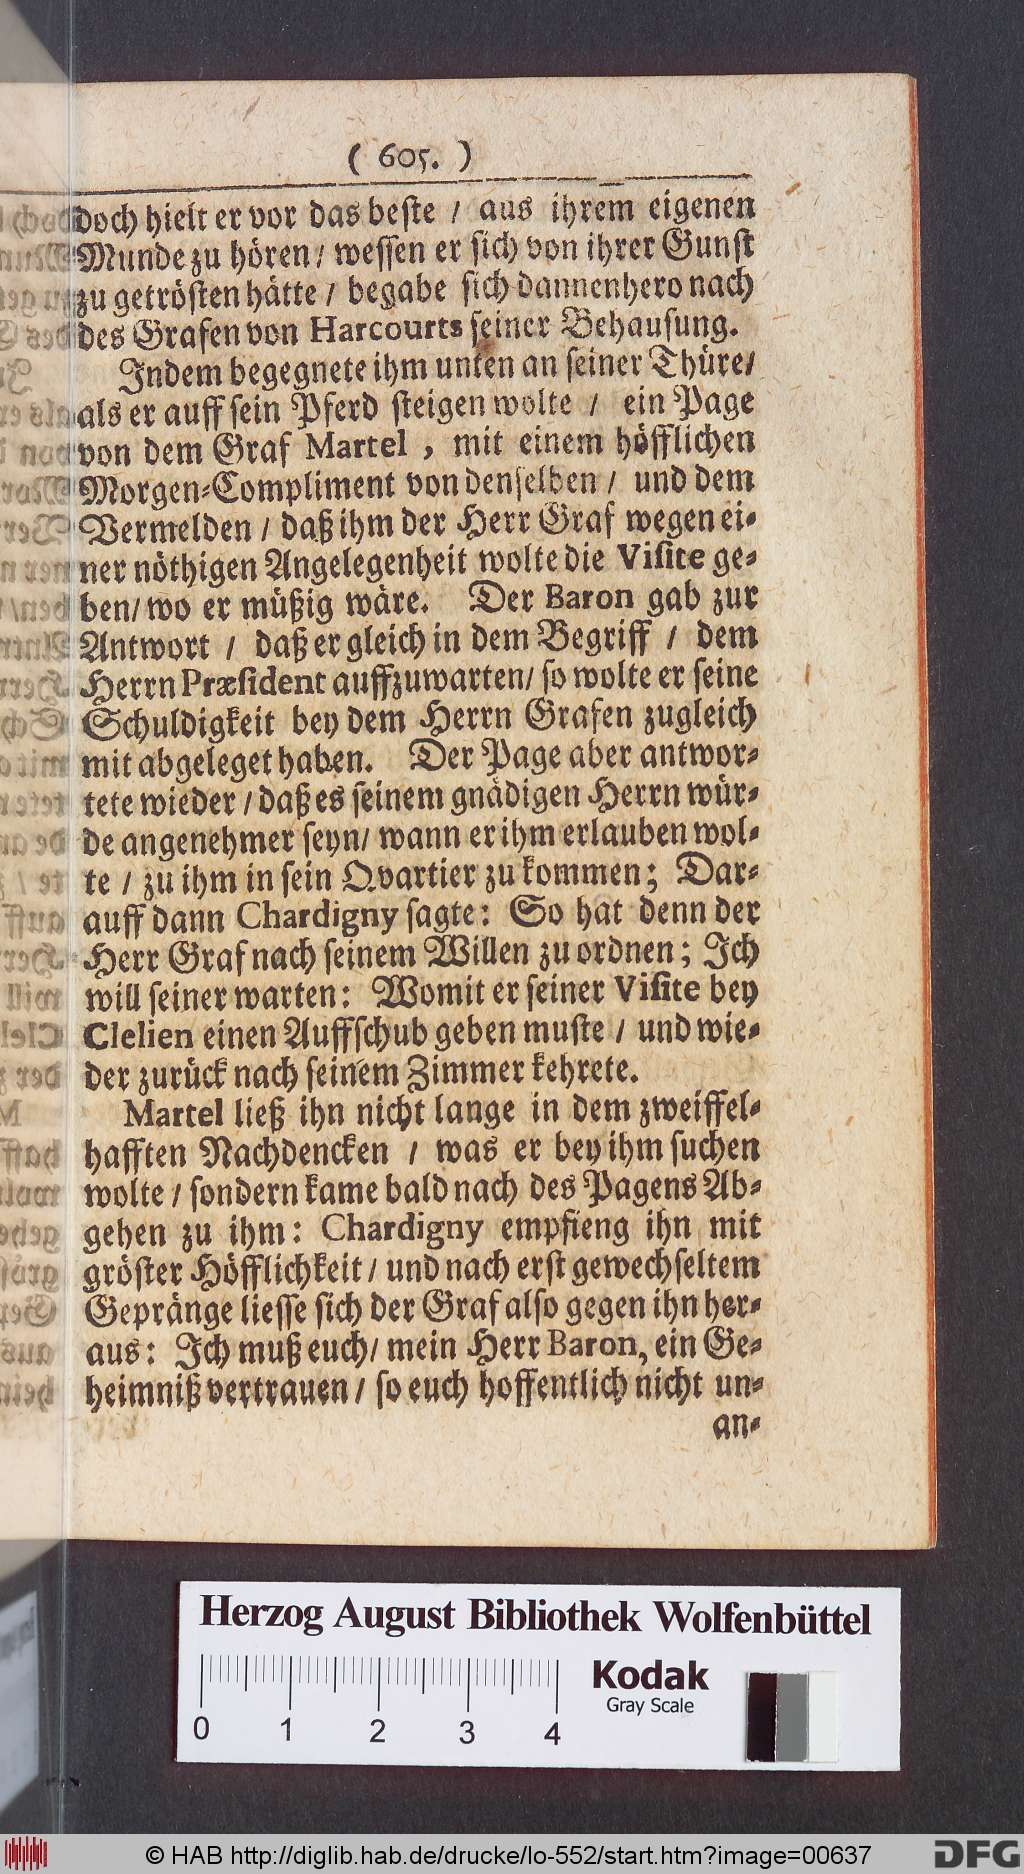 ( 605. )
doch hielt er vor das beste / aus ihrem eigenen
Munde zu hören / wessen er sich von ihrer Gunst
zu getrösten hätte / begabe sich dannenhero nach
des Grafen von Harcourts seiner Behausung.
Indem begegnete ihm unten an seiner Thüre/
als er auff sein Pferd steigen wolte / ein Page
von dem Graf Martel, mit einem höfflichen
Morgen-Compliment von denselben / und dem
Vermelden / daß ihm der Herr Graf wegen ei-
ner nöthigen Angelegenheit wolte die Visite ge-
ben/ wo er müßig wäre. Der Baron gab zur
Antwort / daß er gleich in dem Begriff / dem
Herrn Præsident auffzuwarten/ so wolte er seine
Schuldigkeit bey dem Herrn Grafen zugleich
mit abgeleget haben. Der Page aber antwor-
tete wieder / daß es seinem gnädigen Herrn wür-
de angenehmer seyn/ wann er ihm erlauben wol-
te / zu ihm in sein Qvartier zu kommen; Dar-
auff dann Chardigny sagte: So hat denn der
Herr Graf nach seinem Willen zu ordnen; Ich
will seiner warten: Womit er seiner Visite bey
Clelien einen Auffschub geben muste / und wie-
der zurück nach seinem Zimmer kehrete.
Martel ließ ihn nicht lange in dem zweiffel-
hafften Nachdencken / was er bey ihm suchen
wolte / sondern kame bald nach des Pagens Ab-
gehen zu ihm: Chardigny empfieng ihn mit
gröster Höfflichkeit / und nach erst gewechseltem
Gepränge liesse sich der Graf also gegen ihn her-
aus: Ich muß euch/ mein Herr Baron, ein Ge-
heimniß vertrauen / so euch hoffentlich nicht un-
an-
Herzog August Bibliothek Wolfenbüttel
Kodak
Gray Scale
0 1 2 3 4
© HAB http://diglib.hab.de/drucke/lo-552/start.htm?image=00637
DFG